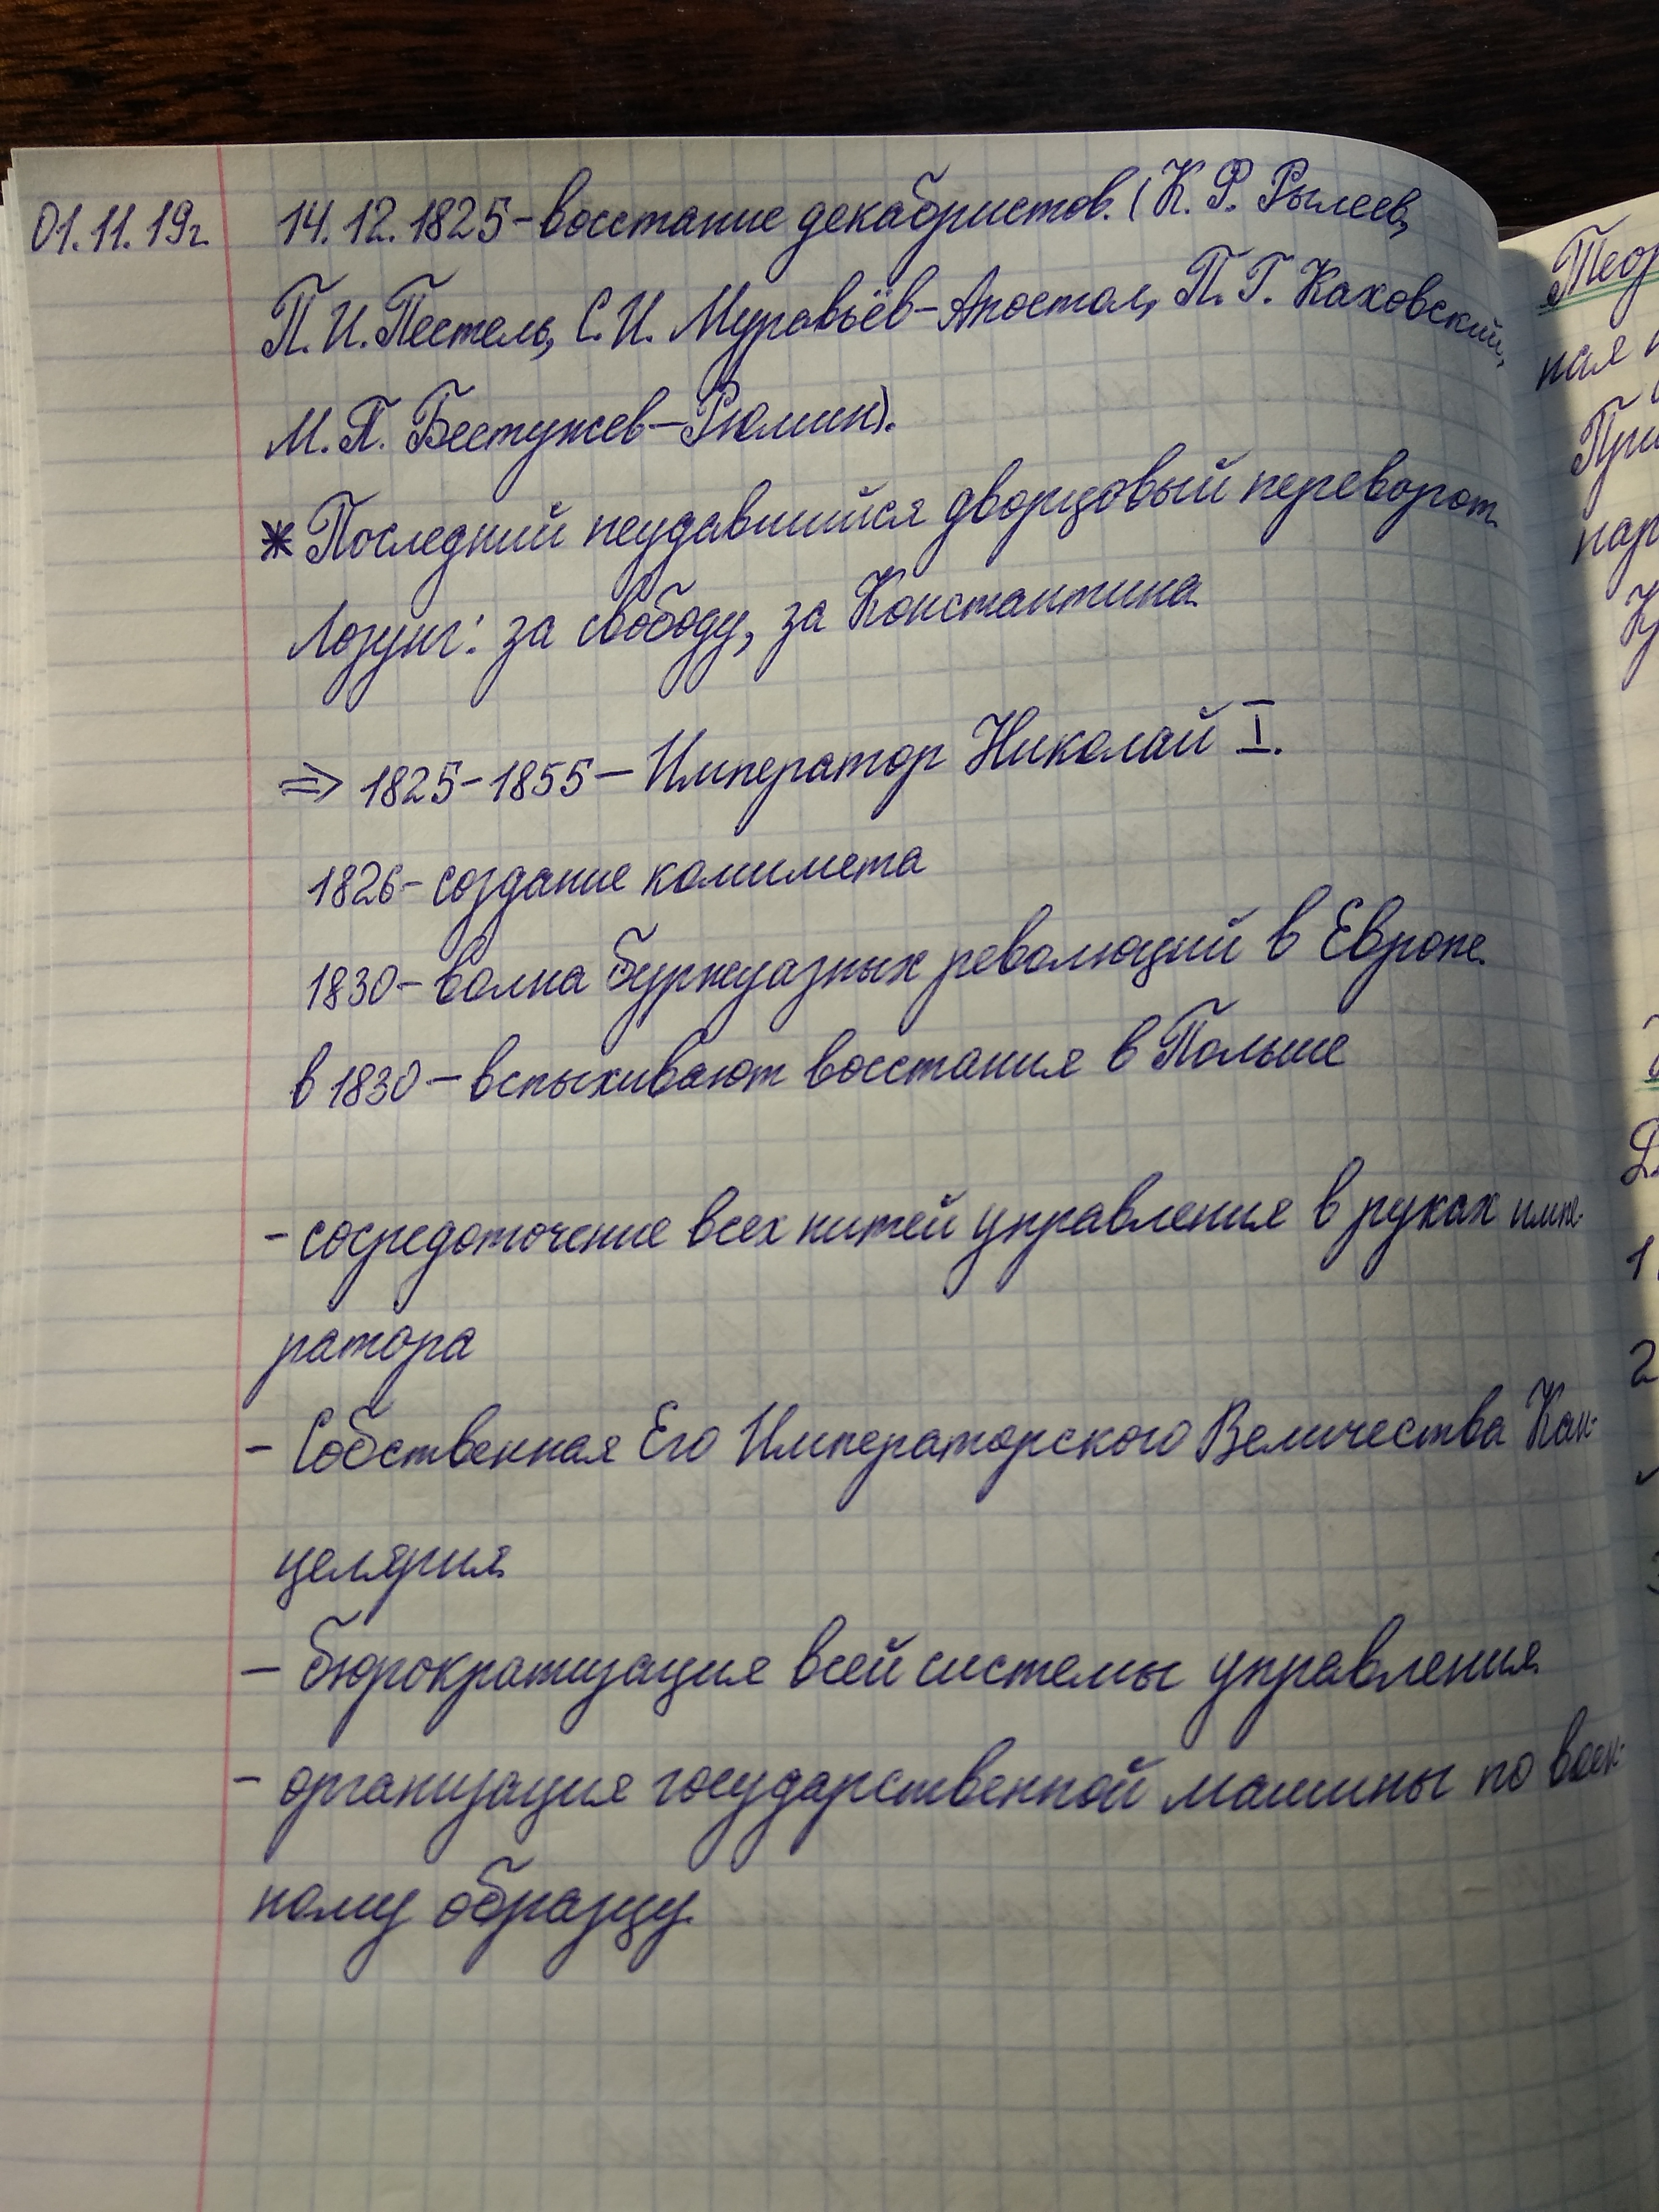 01.11.19г. 14.12.1825-восстание декабристов. (К. Ф. Рылеев,
П. И. Пестель, С. И. Муравьёв-Апостол, П. Г. Каховский,
М. П. Бестужев-Рюмин).
* Последний неудавшийся дворцовый переворот.
Лозунг: за свободу, за Константина
⇒ 1825-1855 – Император Николай I.
1826 - создание комимета
1830 - волна буржуазных революций в Европе.
в 1830 – вспыхивают восстания в Польше
- сосредоточение всех нитей управления в руках импе-
ратора
- Собственная Его Императорского Величества Кан-
целярия
- бюрократизация всей системы управления
- организация государственной машины по воен-
ному образцу.
Теор
ная
При
пар
1
2